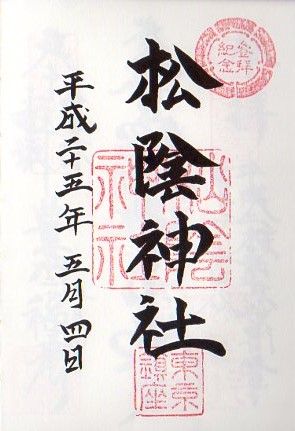 参拝紀念
松陰神社
松陰神社
東京鎮座
平成二十五年五月四日